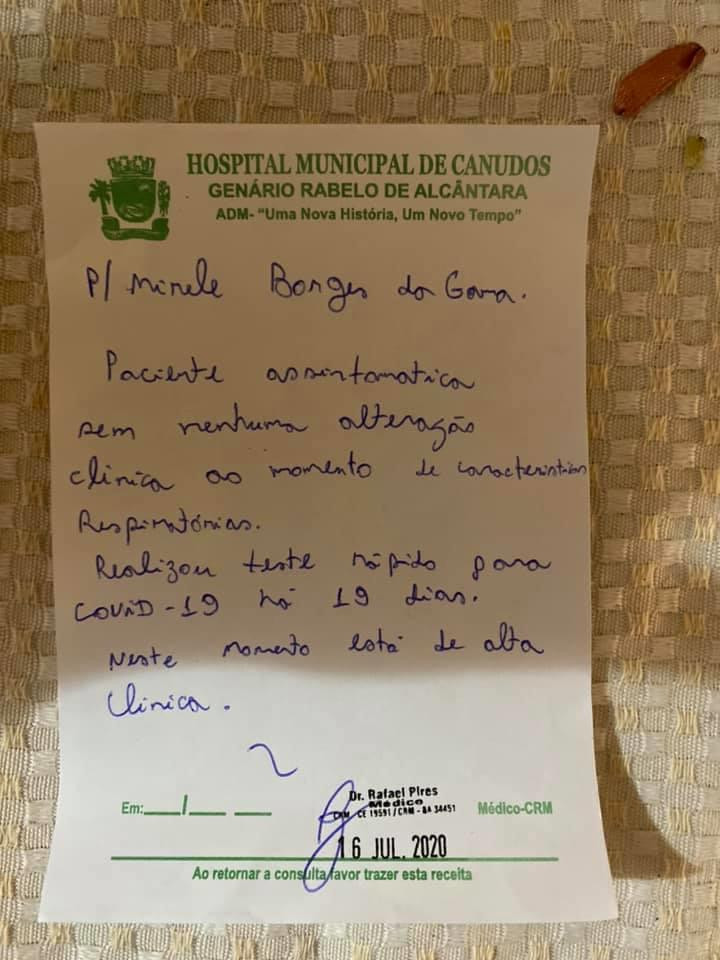 HOSPITAL MUNICIPAL DE CANUDOS
GENÁRIO RABELO DE ALCÂNTARA
ADM- “Uma Nova História, Um Novo Tempo”
P/ Mirele Borges da Gama.
Paciente assintomatica
sem nenhuma alteração
clinica ao momento de caracteristicas
Respiratórias.
Realizou teste rápido para
COVID-19 há 19 dias.
Neste momento está de alta
Clinica.
Em:___/___ ___
Dr. Rafael Pires
Médico
CRM CE 19591 / CRM - BA 34451
Médico-CRM
16 JUL. 2020
Ao retornar a consulta favor trazer esta receita